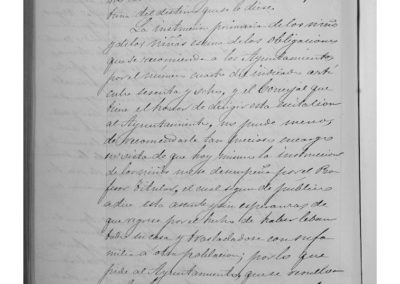 tino del destino que se le diese.
La instruccion primaria de los niños
y de las niñas es una de las obligaciones
que se recomienda a los Ayuntamientos
por el numero cuatro del indicado artí
culo sesenta y ocho, y el Concejal que
tiene el honor de dirigir esta invitacion
al Ayuntamiento, no puede menos
de recomendarle tan preciso encargo
en vista de que hoy mismo la instruccion
de los niños no se desempeña por el Pro
fesor titular, el cual segun de publico
a dice esta ausente y sin esperanzas de
que regrese por el hecho de haber levan
tado su casa y trasladadose con su fa
milia a otra poblacion; por lo que
pide al Ayuntamiento que se resuelva